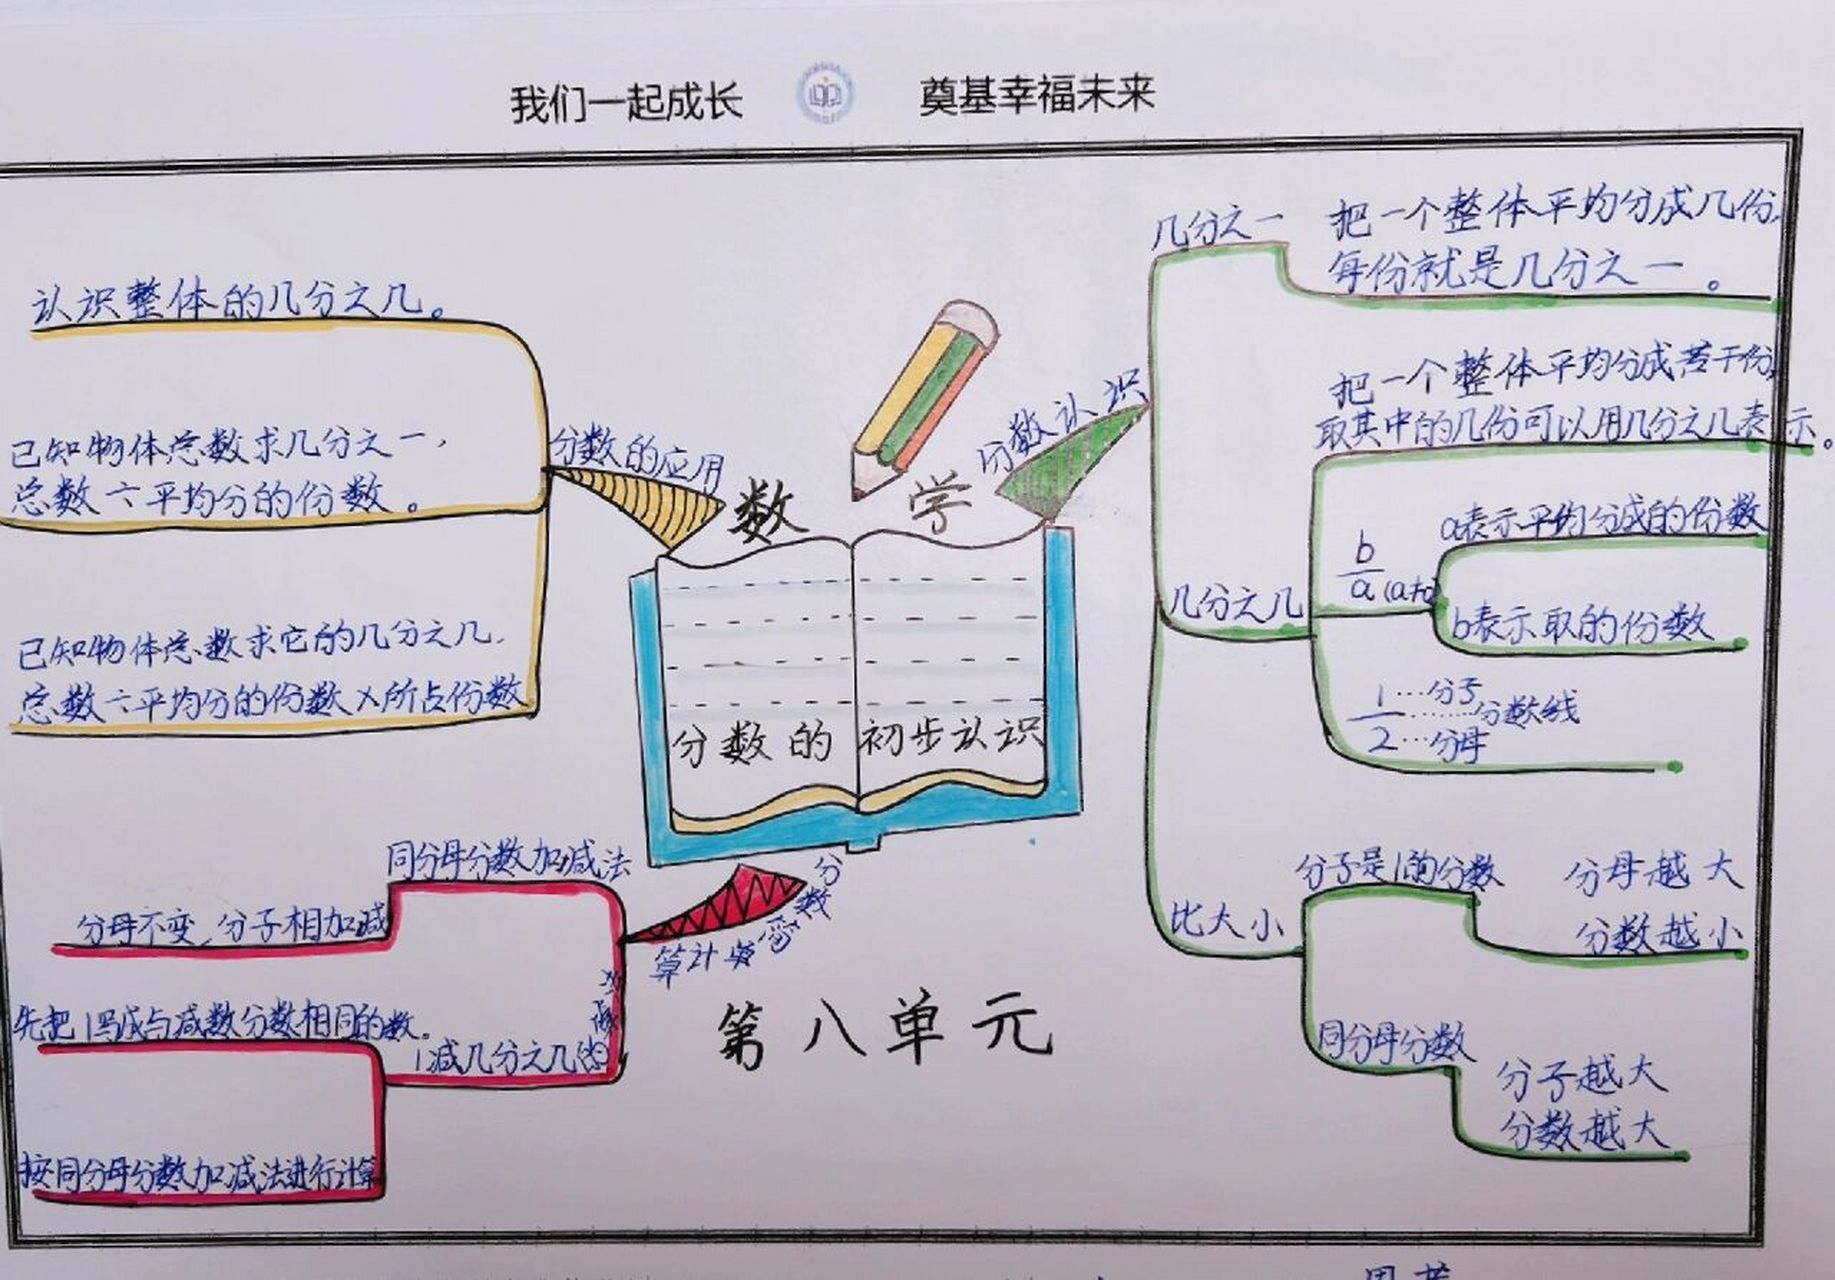 我们一起成长 奠基幸福未来
认识整体的几分之几。
已知物体总数求几分之一，
总数÷平均分的份数。
已知物体总数求它的几分之几，
总数÷平均分的份数×所占份数
分数的应用
数 学
分数的初步认识
分数认识
几分之一
把一个整体平均分成几份，
每份就是几分之一。
几分之几
把一个整体平均分成若干份，
取其中的几份可以用几分之几表示。
b
a (a≠0)
a表示平均分成的份数
b表示取的份数
1…分子
……分数线
2…分母
比大小
分子是1的分数
分母越大
分数越小
同分母分数
分子越大
分数越大
分数
算计
同分母分数加减法
分母不变，分子相加减
1减几分之几的
先把1写成与减数分数相同的数。
按同分母分数加减法进行计算
第八单元